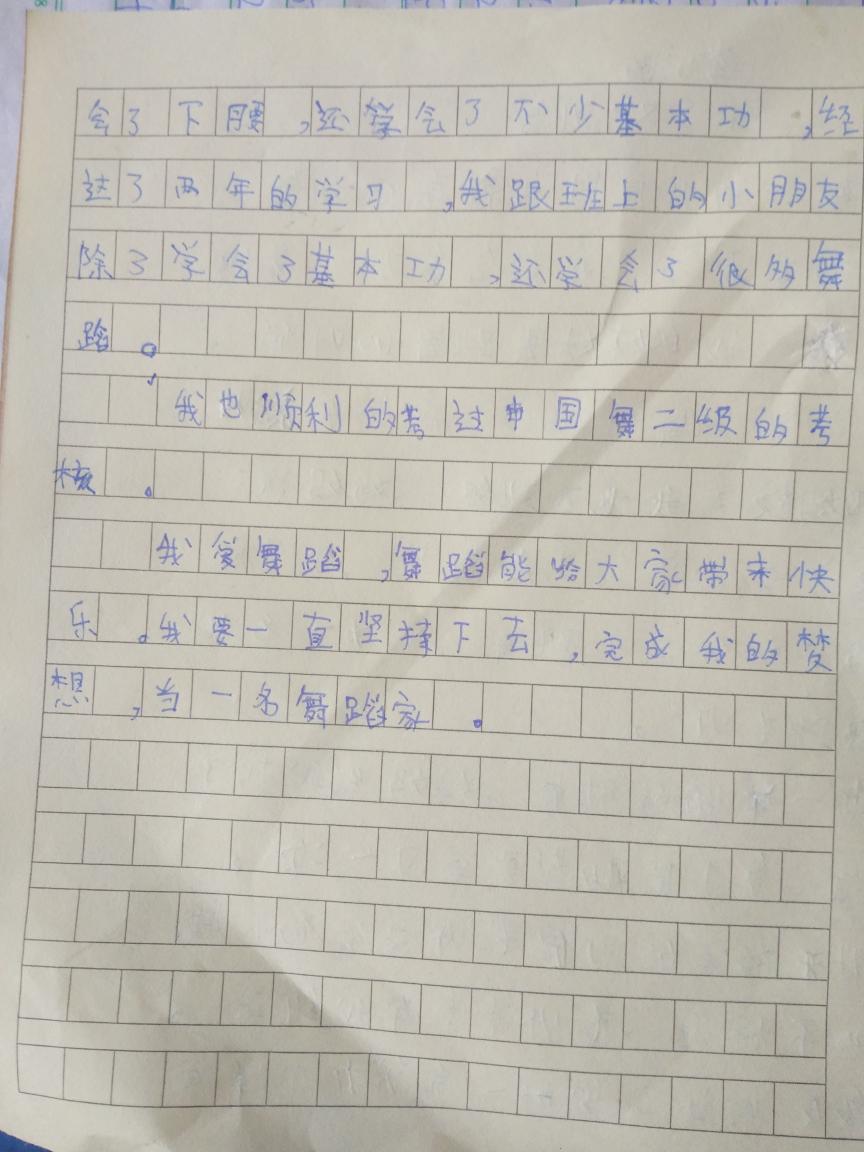 会了下腰,还学会了不少基本功,经
过了两年的学习,我跟班上的小朋友
除了学会了基本功,还学会了很多舞
蹈。
我也顺利的考过中国舞二级的考
核。
我爱舞蹈,舞蹈能给大家带来快
乐。我要一直坚持下去,完成我的梦
想,当一名舞蹈家。